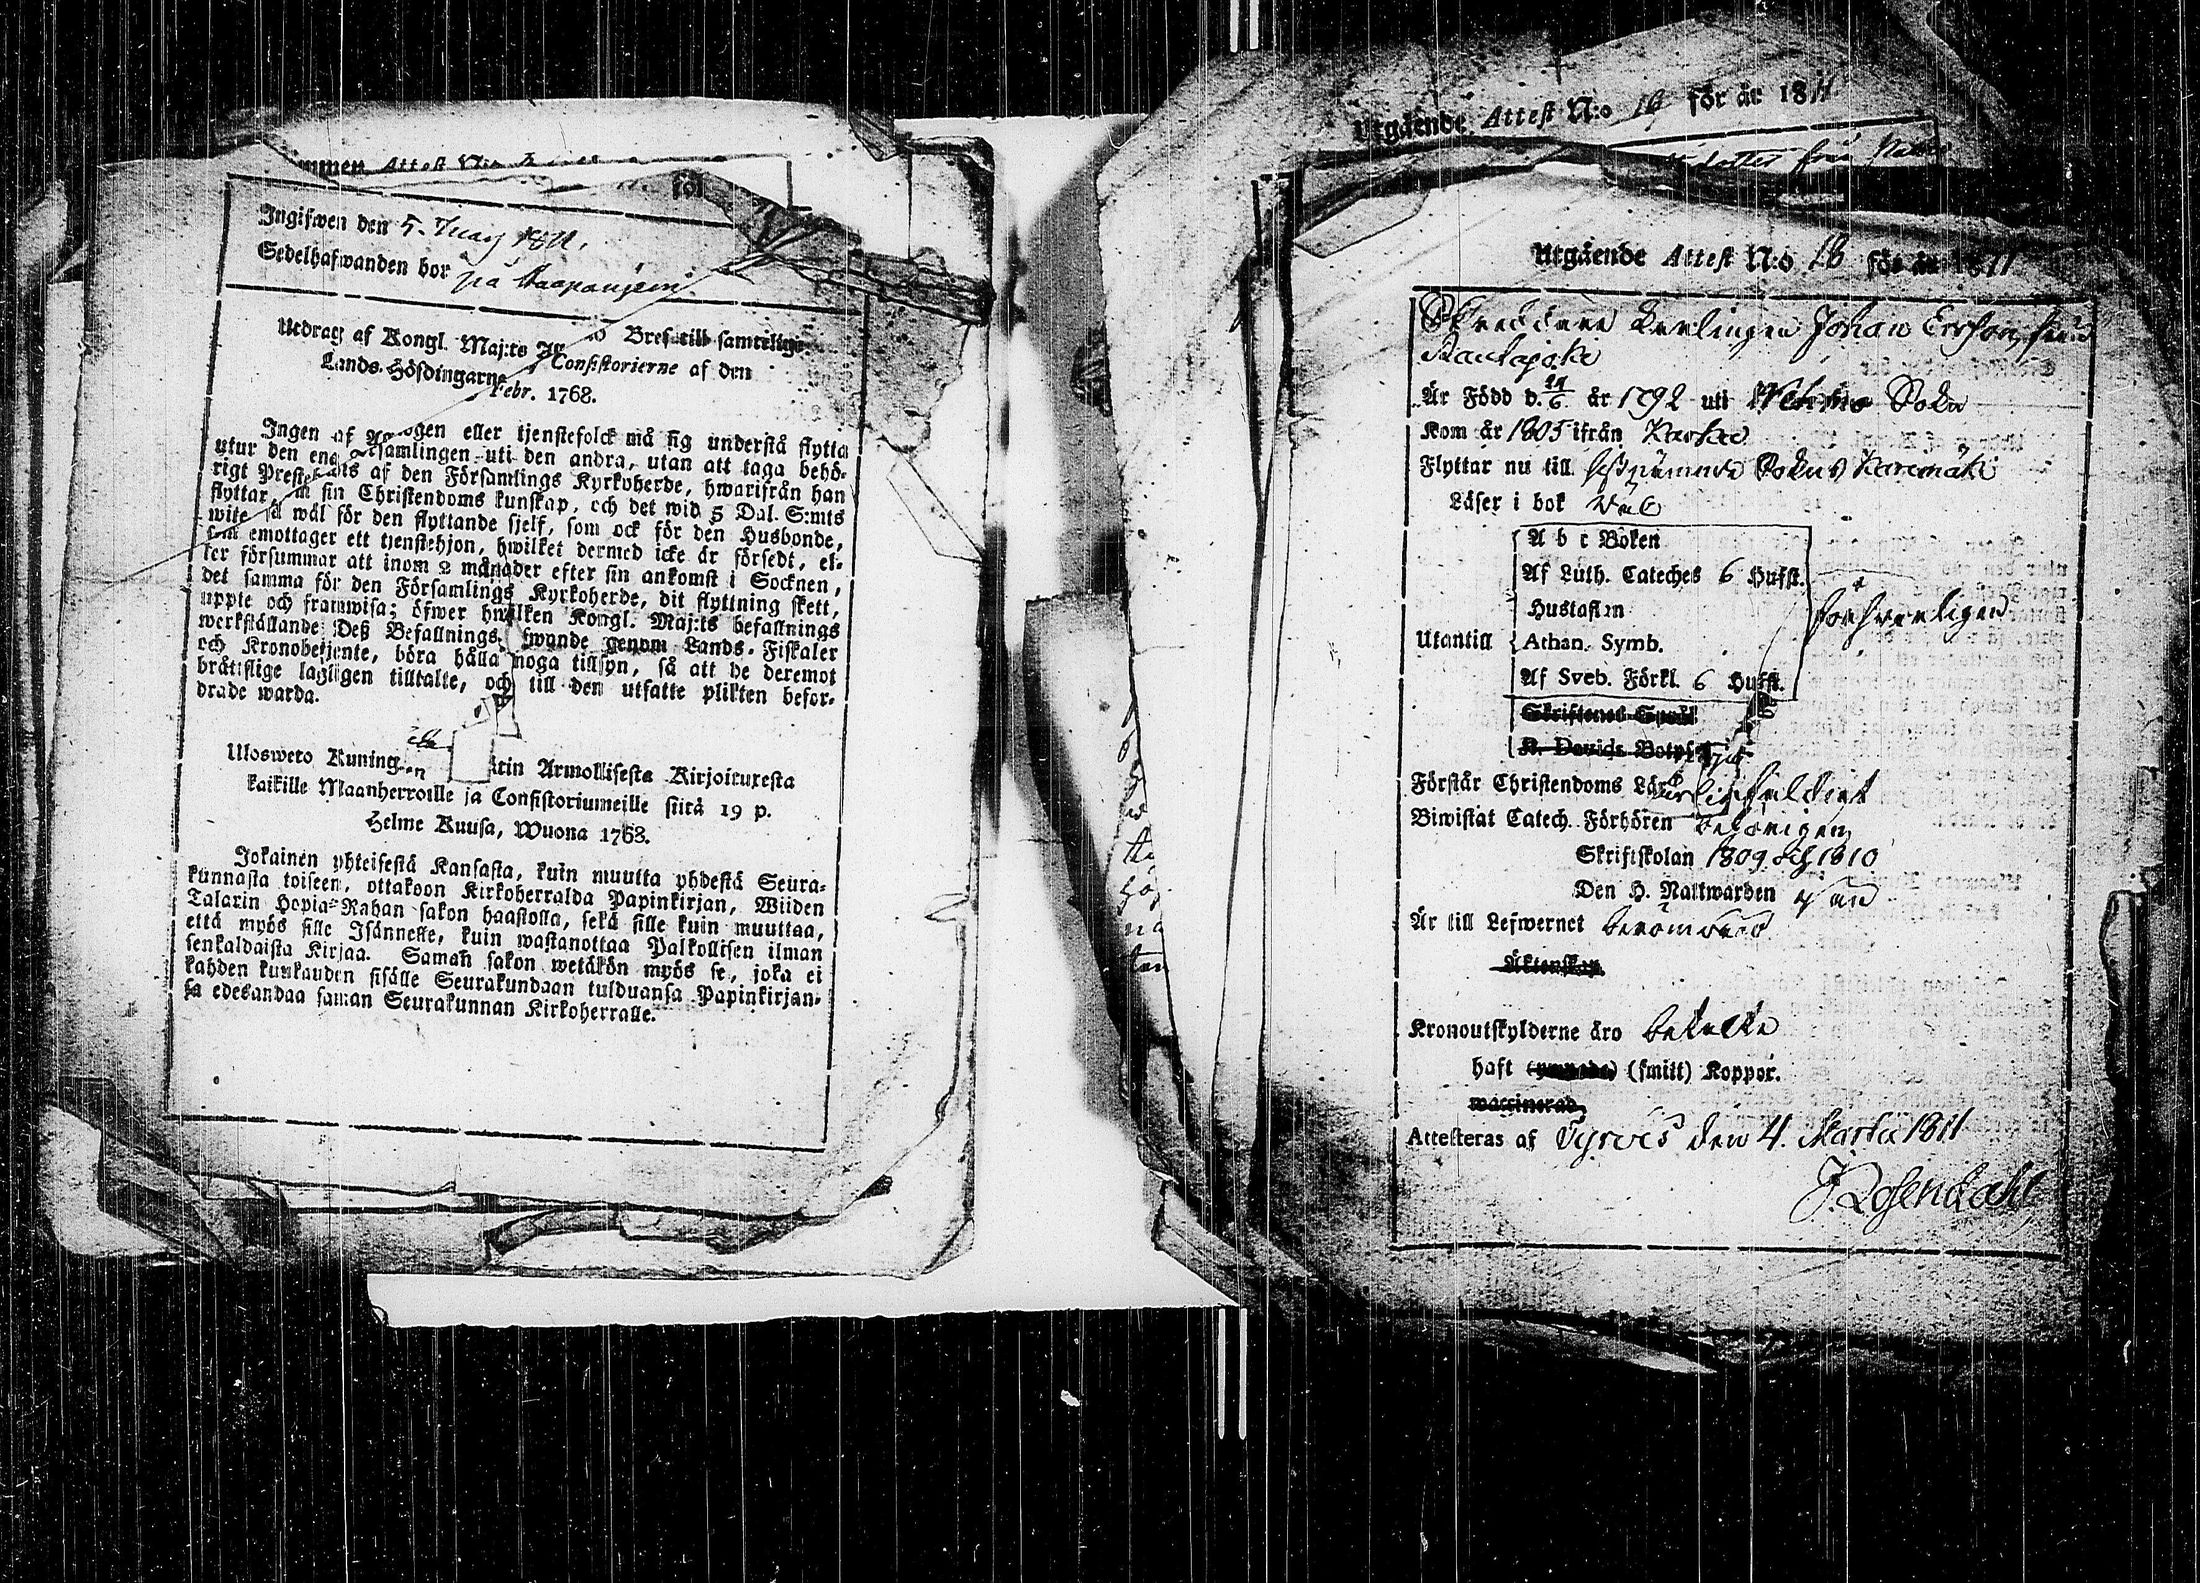 ommen Attest N:o
fol
Ingifwen den 5. Maij 1811.
Sedelhafwanden bor på
Utdrag af Kongl. Maj:ts Bref till samtelige
Lands-Höfdingarne Consistorierne af den
Febr. 1768.
Ingen af eller tjenstefolck må sig understå flytta
utur den ena samlingen uti den andra, utan att taga behö-
rigt af den Församlings Kyrkoherde, hwarifrån han
flyttar, sin Christendoms kunskap, och det wid 5 Dal. S:mts
wite så wäl för den flyttande sjelf, som ock för den Husbonde,
som emottager ett tjenstehjon, hwilket dermed icke är försedt, el-
ler försummar att inom 2 månader efter sin ankomst i Socknen,
det samma för den Församlings Kyrkoherde, dit flyttning skett,
uppte och framwisa; öfwer hwilken Kongl. Maj:ts befallnings
werkställande Deß Befallnings- fwande genom Lands-Fiskaler
och Kronobetjente, böra hålla noga tillsyn, så att de deremot
bråttslige lagligen tilltalte, och till den utsatte plikten befor-
drade warda.
Ulosweto Kuning en tin Armollisesta Kirjoituxesta
kaikille Maanherroille ja Consistoriumeille siitä 19 p.
Helme Kuusa, Wuona 1768.
Jokainen yhteisestä Kansasta, kuin muutta yhdestä Seura-
kunnasta toiseen, ottakoon Kirkoherralda Papinkirjan, Wiiden
Talarin Hopia-Rahan sakon haastolla, sekä sille kuin muuttaa,
että myös sille Isännelle, kuin wastanottaa Palkollisen ilman
senkaldaista Kirjaa. Saman sakon wetäkön myös se, joka ei
kahden kuukauden sisälle Seurakundaan tulduansa Papinkirjan-
sa edesandaa saman Seurakunnan Kirkoherralle.
Utgående Attest N:o 16 för år 1811
från
Utgående Attest N:o 18 för år 1811
Skreddare Lerlingen Johan Ersson från
Rautajoki
Är Född d. år 1792 uti Sokn
Kom år 1805 ifrån Karkku
Flyttar nu till Sokn
Läser i bok väl
A b c Boken
Af Luth. Cateches 6 Hufst.
Hustaflan
Utantill Athan. Symb.
Af Sveb. Förkl. 6 Hufst.
Skriftenes Språk
K. Davids Botps
förswarligen
Förstår Christendoms Lära enfaldigt
Biwistat Catech. Förhören behörigen
Skriftskolan 1809 och 1810
Den H. Nattwarden
Är till Lefwernet berömd
Äktenskap.
Kronoutskylderne äro betalte
haft (ympade) (smitt) Koppor.
waccinerad.
Attesteras af Tyrvis den 4. Martii 1811
J. Rosendahl